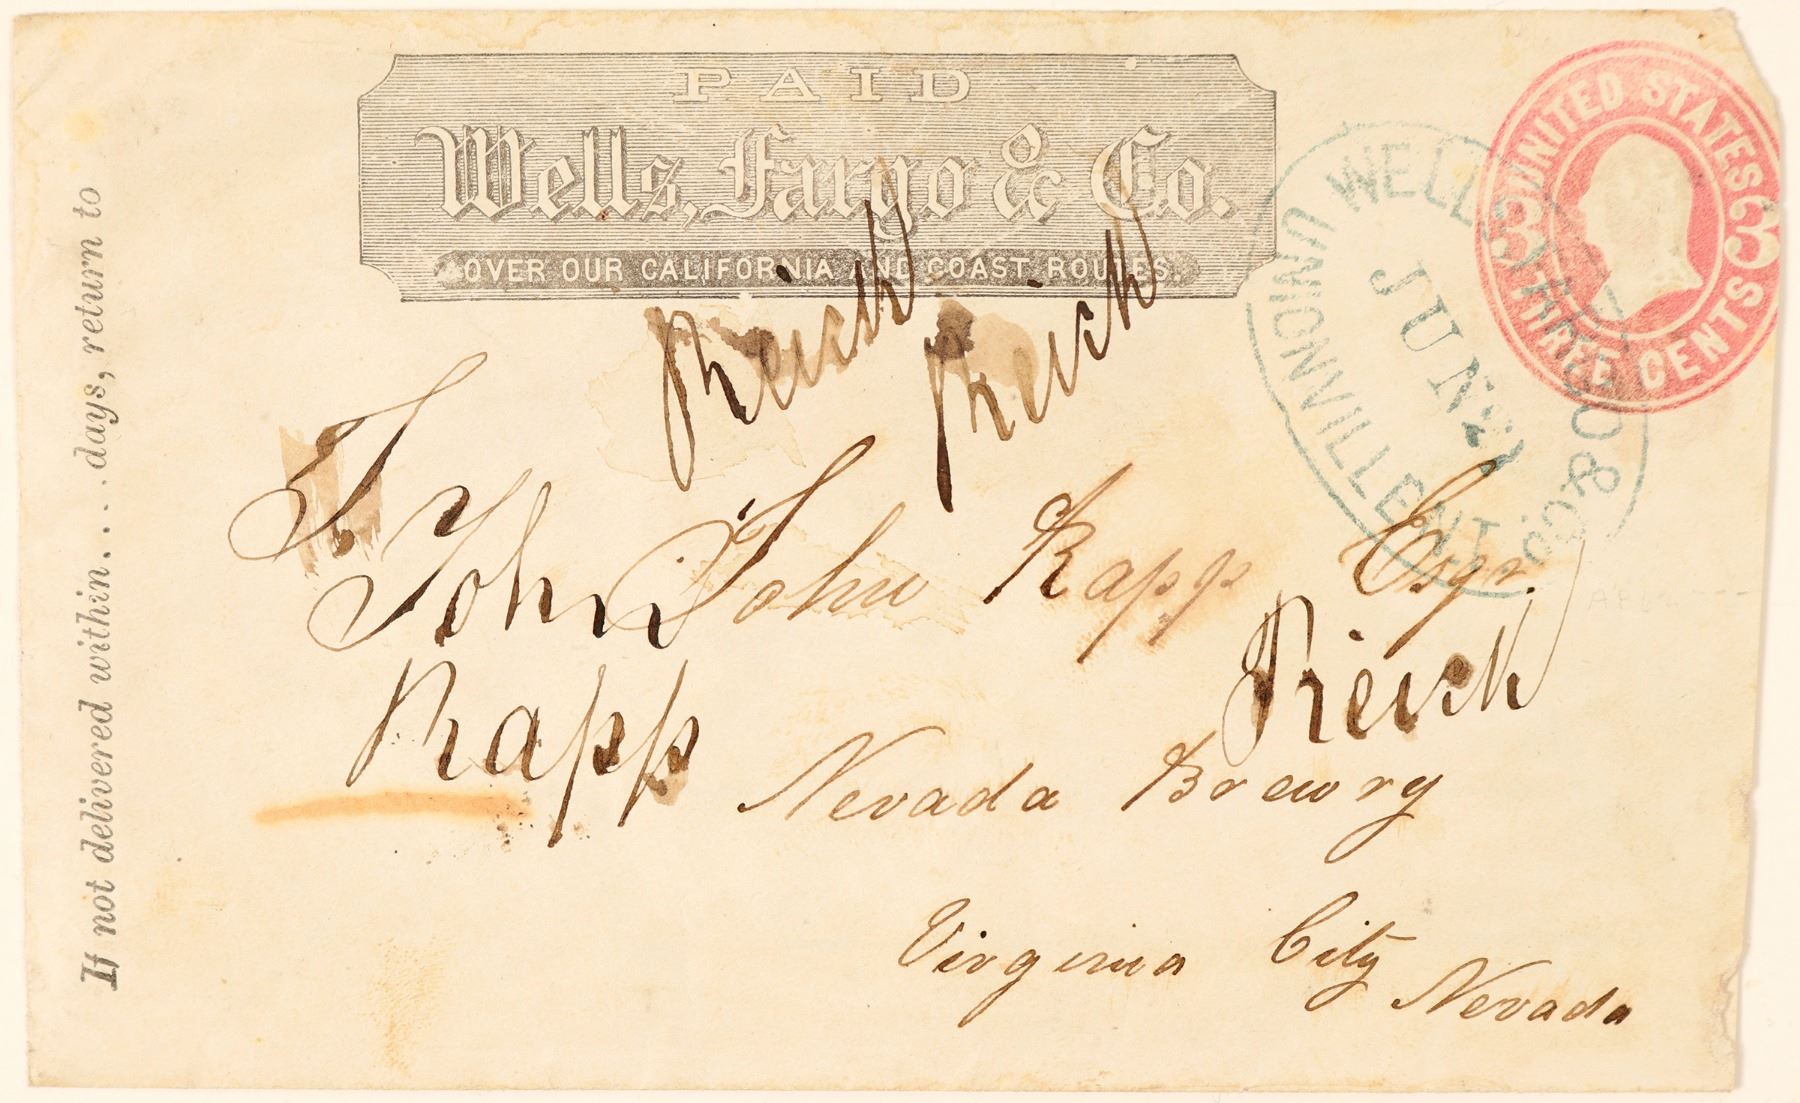 PAID
Wells, Fargo & Co.
OVER OUR CALIFORNIA AND COAST ROUTES.
UNITED STATES
3 3
THREE CENTS
WELLS FARGO & CO.
JUN 21
UNIONVILLE N.T.
If not delivered within....days, return to
Reick
Reick
J.
John John Rapp Esqr.
Rapp
Reick
Nevada Brewry
Virginia City
Nevada